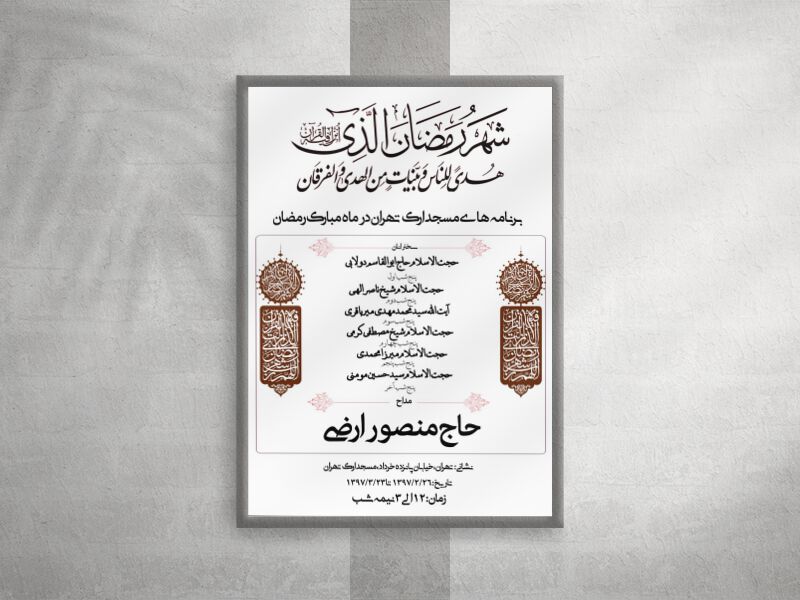 شَهرُ رَمَضَانَ الَّذِی أُنزِلَ فِیهِ القُرآنُ
هُدىً لِلنَّاسِ وَ بَیِّنَاتٍ مِنَ الهُدىٰ وَ الفُرقَانِ
برنامه های مسجد ارک تهران در ماه مبارک رمضان
سخنرانان
حجت الاسلام حاج ابوالقاسم دولابی
پنج شب اول
حجت الاسلام شیخ ناصر الهی
پنج شب دوم
آیت الله سید محمد مهدی میرباقری
پنج شب سوم
حجت الاسلام شیخ مصطفی کرمی
پنج شب چهارم
حجت الاسلام میرزامحمدی
پنج شب پنجم
حجت الاسلام سید حسین مومنی
پنج شب آخر
مداح
حاج منصور ارضی
نشانی: تهران، خیابان پانزده خرداد، مسجد ارک تهران
تاریخ: ۱۳۹۷/۲/۲۶ تا ۱۳۹۷/۳/۲۳
زمان: ۱۲ الی ۳ نیمه شب